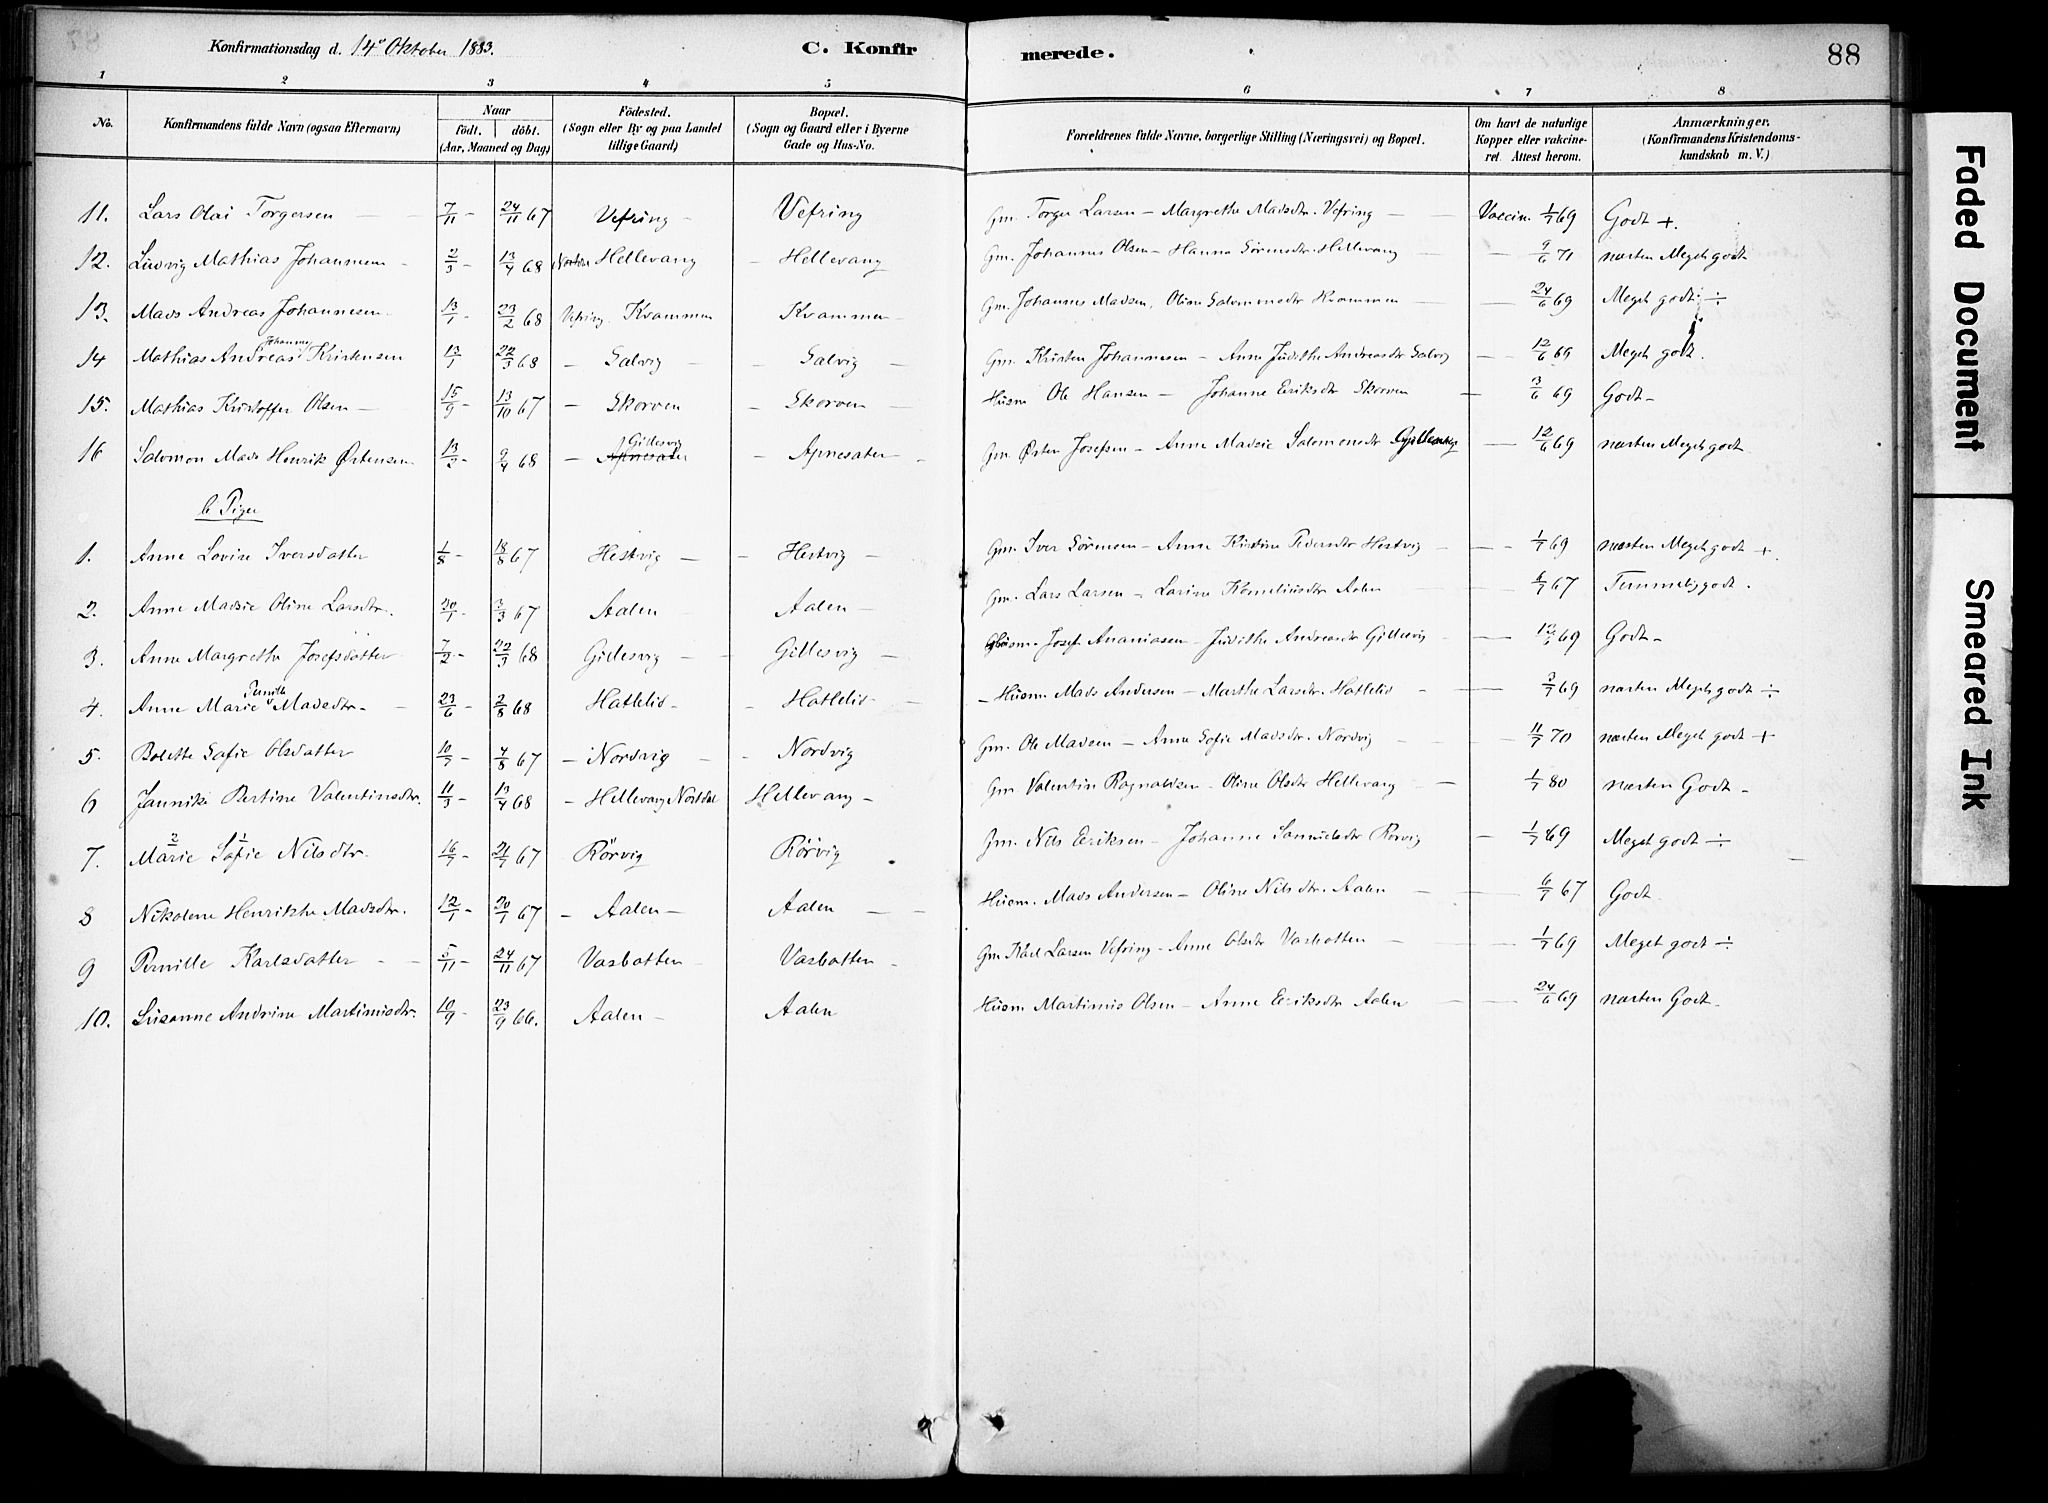 Konfirmationsdag d. 14de Oktober 1883. C. Konfirmerede. 88
1 2 3 4 5 6 7 8
No. Konfirmandens fulde Navn (ogsaa Efternavn) Naar födt. döbt. (Aar, Maaned og Dag) Födested. (Sogn eller By og paa Landet tillige Gaard) Bopæl. (Sogn og Gaard eller i Byerne Gade og Hus-No. Forældrenes fulde Navne, borgerlige Stilling (Næringsvei) og Bopæl. Om havt de naturlige Kopper eller vakcineret. Attest herom. Anmærkninger. (Konfirmandens Kristendomskundskab m. V.)
11. Lars Olai Torgersen 7/11 - 24/11 67 Vefring Vefring Gm. Torger Larsen - Margrethe Madsdtr. Vefring Vaccin. 1/7 69 Godt +.
12. Ludvig Mathias Johannesen 2/3 - 13/4 68 Hellevang Hellevang Gm. Johannes Olsen - Hanna Sörensdtr Hellevang 9/6 71 næsten Meget godt
13. Mads Andreas Johannesen 13/1 - 23/2 68 Vefring Kvammen Kvammen Gm. Johannes Madsen, Oline Salomonsdtr Kvammen 24/6 69 Meget godt ÷
14 Mathias Andreas Johannes Kristensen 13/1 22/3 68 - Salvig Salvig Gm. Kristen Johannesen - Anne Judithe Andreasdtr Salvig 12/6 69 Meget godt.
15. Mathias Kristoffer Olsen 15/9 - 13/10 67 - Skorven - Skorven Husm Ole Hansen - Johanne Eriksdtr Skorven 3/6 69 Godt -
16 Salomon Mads Henrik Østensen 13/2 - 9/4 68 - Gillesvig Apnesater - Apnesater Gm. Østen Josefsen - Anne Madsie Salomonsdtr 12/6 69 næsten Meget godt
b Piger
1. Anne Lovise Iversdatter 1/8 - 18/8 67 Hestvig - Hestvig Gm. Iver Sörensen - Anne Kirstine Pedersdtr Hestvig 1/7 69 næsten Meget godt +.
2. Anne Madsie Oline Larsdtr. 20/1 - 3/3 67 Aalen Aalen Gm. Lars Larsen - Larine Korneliusdtr Aalen 6/7 67 Temmelig godt.
3. Anne Margrethe Josefsdatter 7/2 - 22/3 68 Gillesvig Gillesvig Josef Ananiasen - Judithe Andreasdtr Gillesvig 69 Godt -
4. Anne Marie Pernille Madsdtr. 23/6 - 2/8 68 Hatlelid - Hatlelid - Husm Mads Andersen - Marthe Larsdtr. Hatlelid 69 næsten Meget godt ÷
5. Bolette Sofie Olsdatter 10/7 - 4/8 67 - Nordvig - Nordvig Gm. Ole Madsen - Anne Sofie Madsdtr. Nordvig 11/7 70 næsten Meget godt +
6 Jannike Bertine Valentinsdtr. 11/3 - 13/4 68 - Hellevang Nordal Hellevang Gm Valentin Ragnaldsen - Oline Olsdtr Hellevang 1/7 80 næsten Godt -
7. Marie 2 Sofie 1 Nilsdtr. 16/7 - 21/7 67 Rörvig Rörvig Gm. Nils Eriksen - Johanne Samuelsdtr Rörvig 1/7 69 Meget godt ÷
8 Nikolene Henrikke Madsdtr. 12/1 - 20/1 67 - Aalen Aalen Husm. Mads Andersen - Oline Nilsdtr. Aalen 6/7 67 Godt
9 Pernille Karlsdatter 5/11 - 24/11 67 Vasbotten Vasbotten Gm Karl Larsen Vefring - Anne Olsdtr Vasbotten 1/7 69 Meget godt ÷
10. Susanne Andrine Martinusdtr. 10/9 - 23/9 66. Aalen Aalen Husm Martinus Olsen - Anne Eriksdtr Aalen 24/6 69 næsten Godt.
Faded Document
Smeared Ink